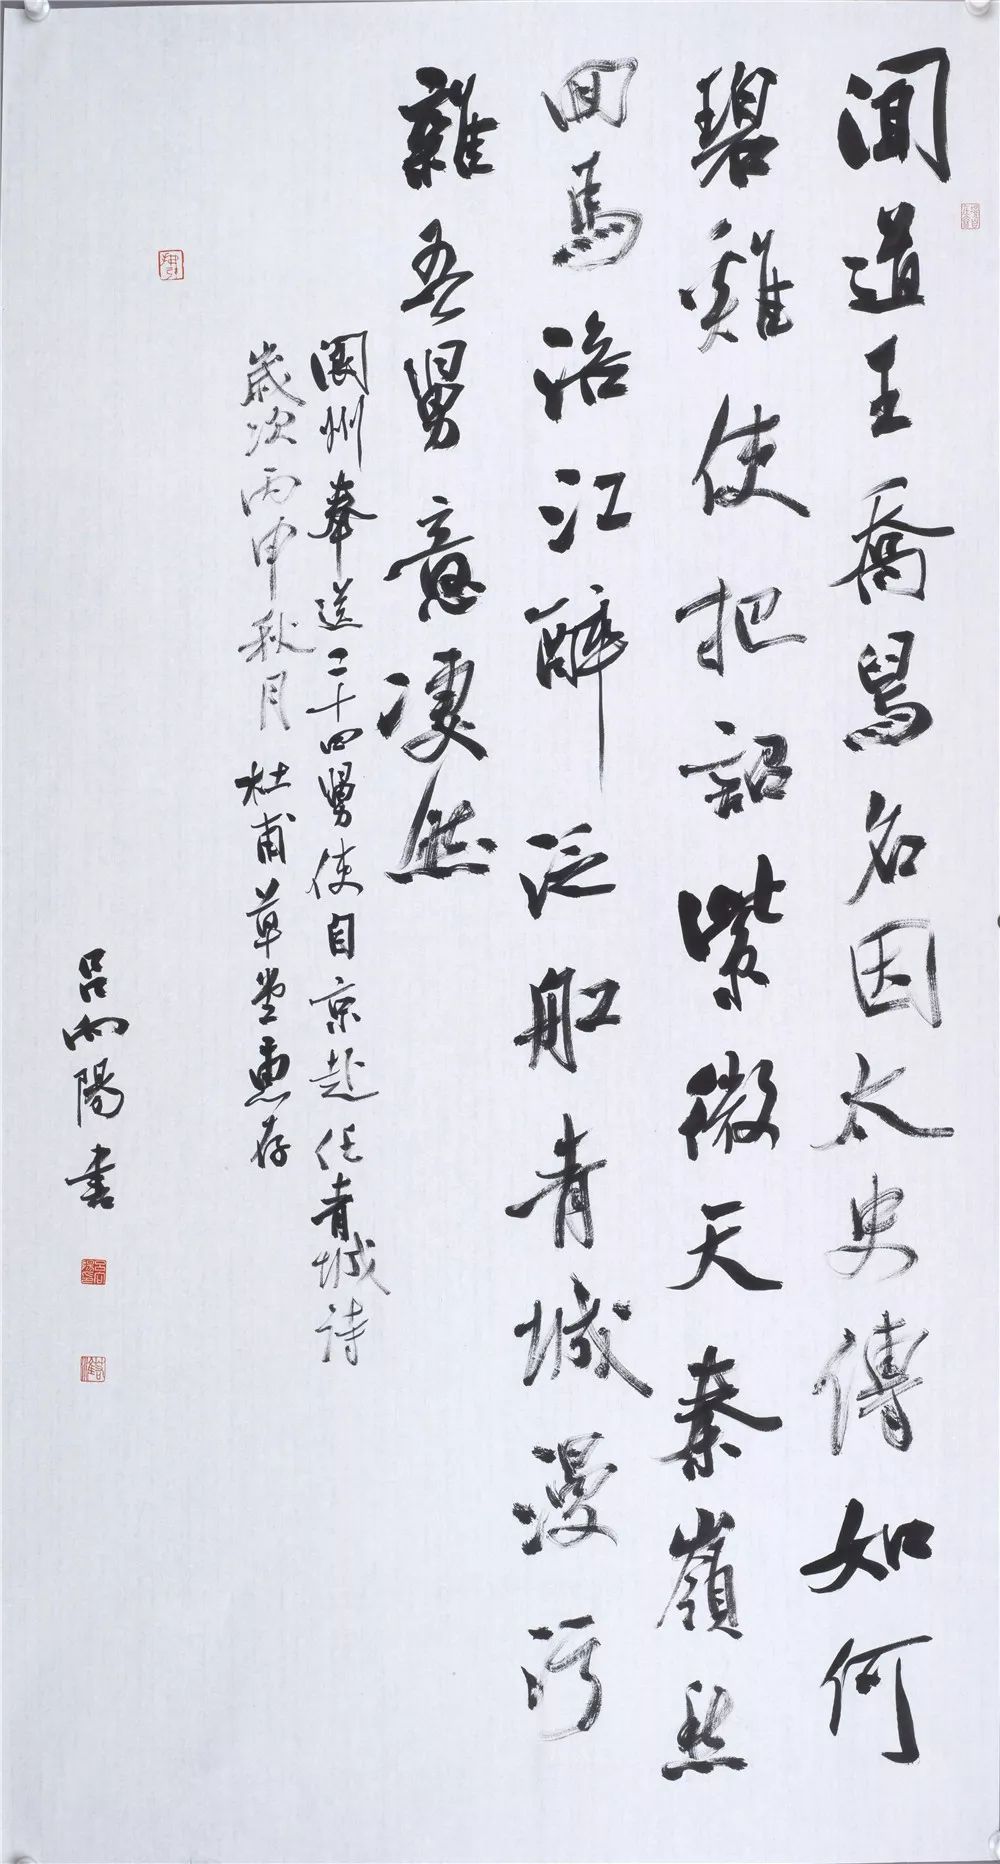 聞道王喬舄名因太史傳如何
碧雞使把詔紫微天秦嶺愁
回馬涪江醉泛舡青城漫污
雜吾舅意凄然
閬州奉送二十四舅使自京赴任青城詩
歲次丙申秋月杜甫草堂惠存
呂向陽書